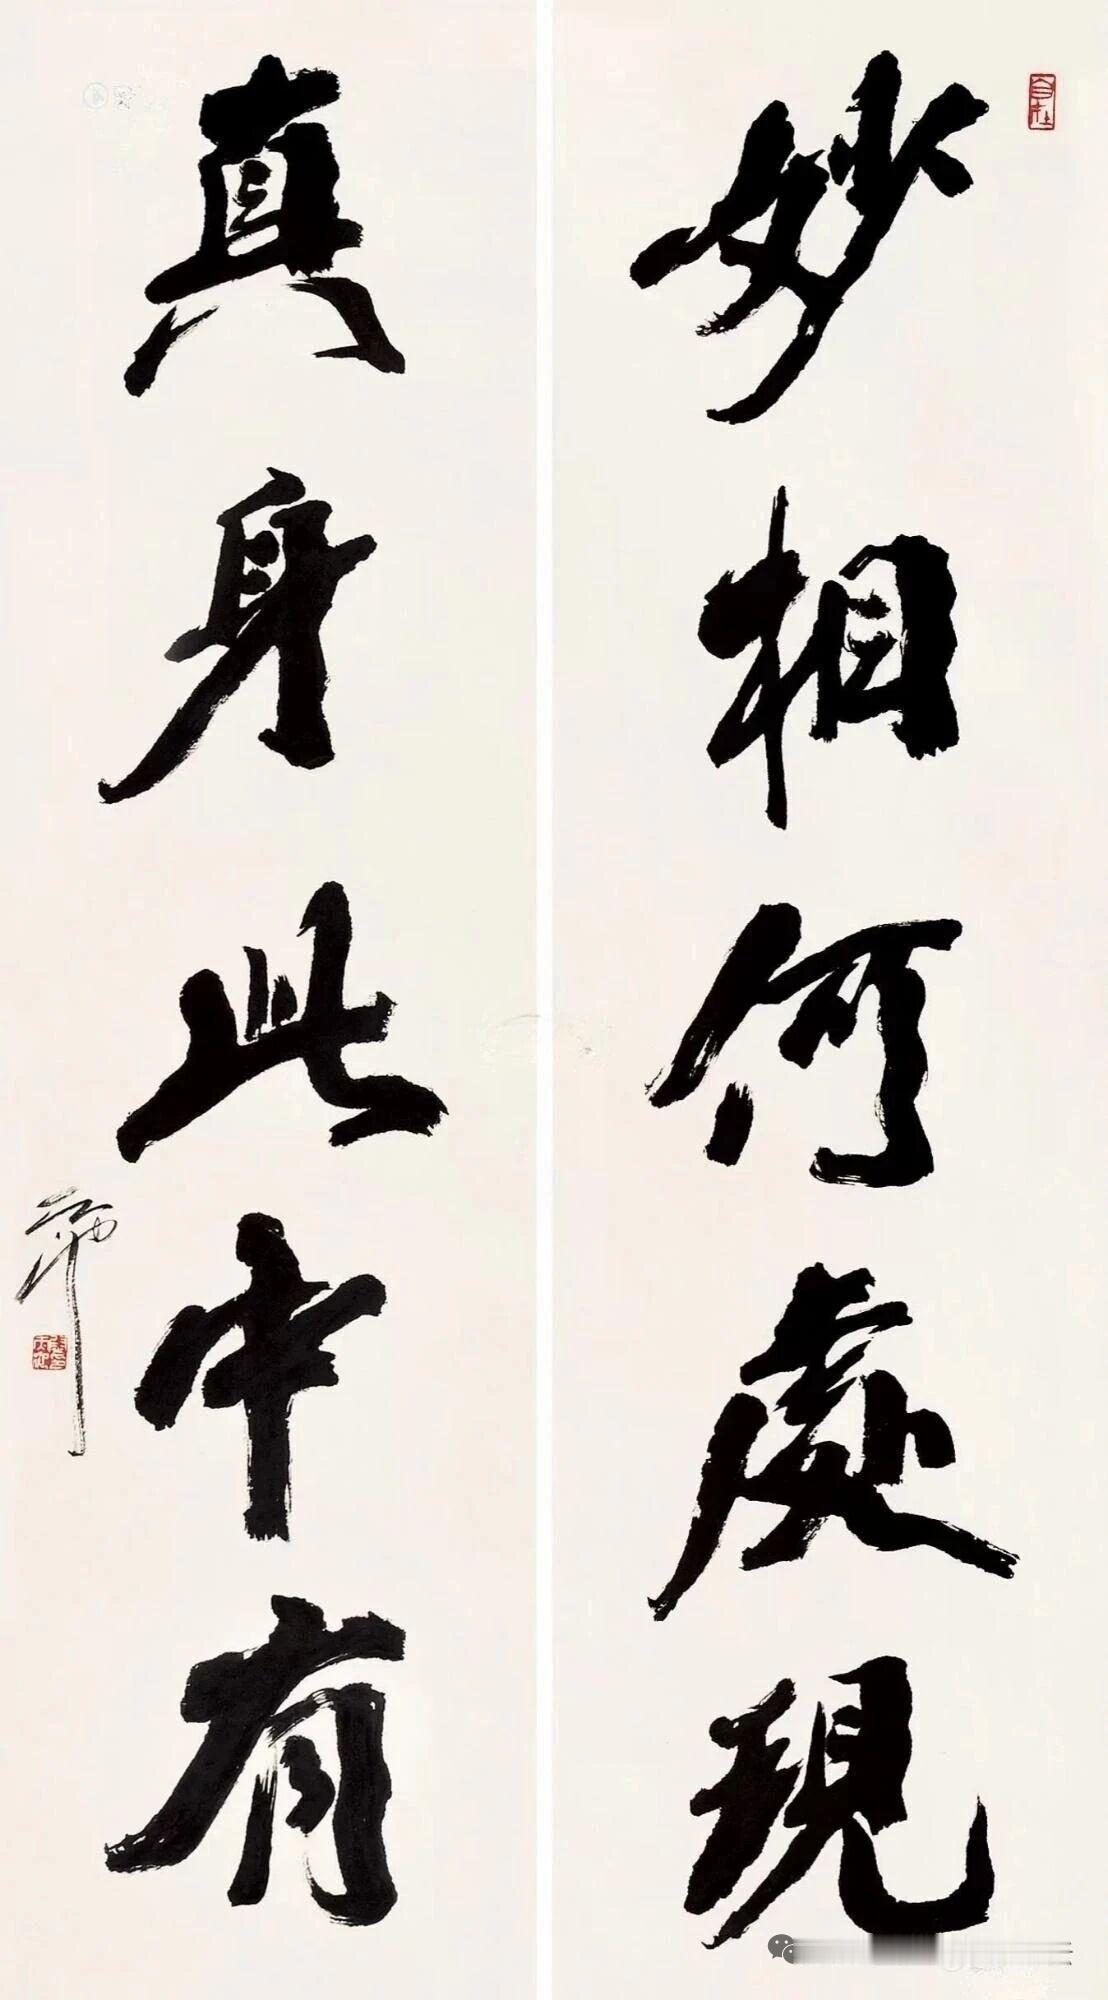 妙相何處現
真身此中有